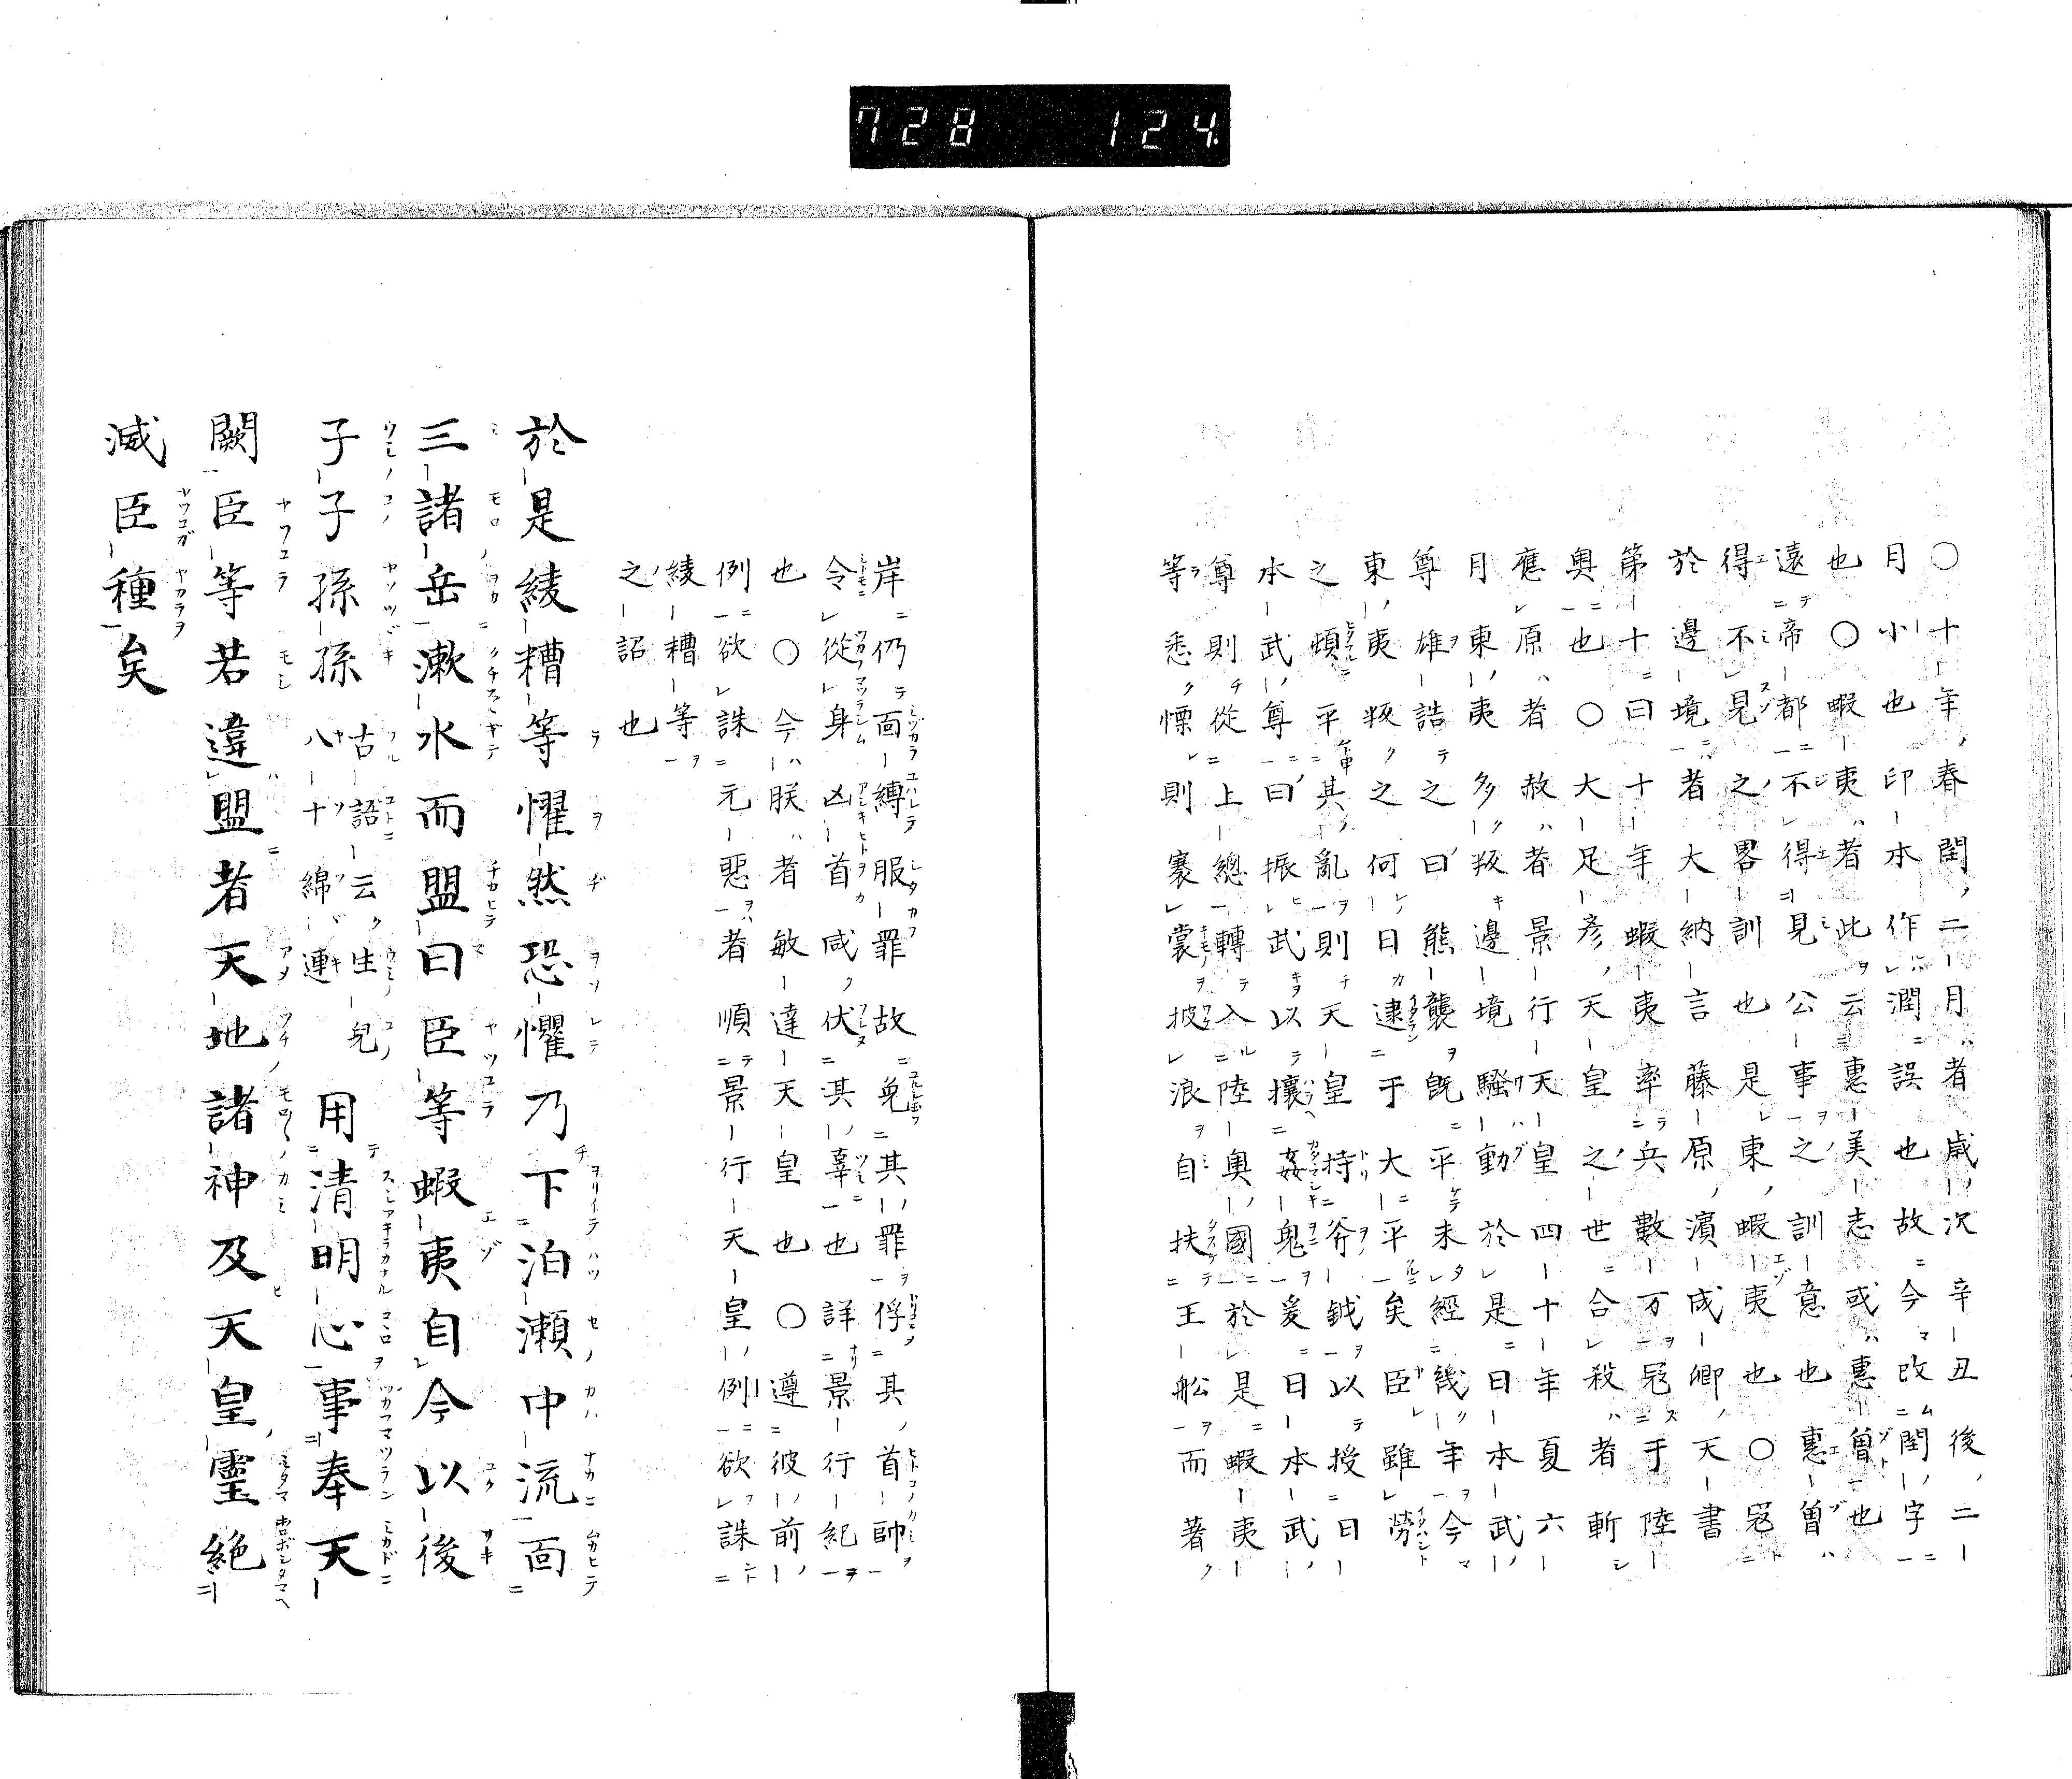 728 124
○十年春閏二月者歳次辛丑後二
月小也印本作潤誤也故今改閏字
也○蝦夷者此云惠美志或惠曽也
遠帝都不得見公事之訓意也惠曽
得不見之畧訓也是東蝦夷也○冦
於邊境者大納言藤原濱成卿天書
第十曰十年蝦夷率兵數万冦于陸
奥也○大足彦天皇之世合殺者斬
應原者赦者景行天皇四十年夏六
月東夷多叛邊境騒動於是日本武
尊雄誥之曰熊襲既平未經幾年今
東夷叛之何日逮于大平矣臣雖勞
之頓平其亂則天皇持斧鉞以授日
本武尊曰振武以攘姦鬼爰日本武
尊則從上總轉入陸奥國於是蝦夷
等悉慄則褰裳披浪自扶王舩而著
岸仍面縛服罪故免其罪俘其首帥
令從身凶首咸伏其辜也詳景行紀
也○今朕者敏達天皇也○遵彼前
例欲誅元惡者順景行天皇例欲誅
綾糟等
之詔也
於是綾糟等懼然恐懼乃下泊瀬中流面
三諸岳漱水而盟曰臣等蝦夷自今以後
子子孫孫 古語云生兒八十綿連 用清明心事奉天
闕臣等若違盟者天地諸神及天皇霊絶
滅臣種矣